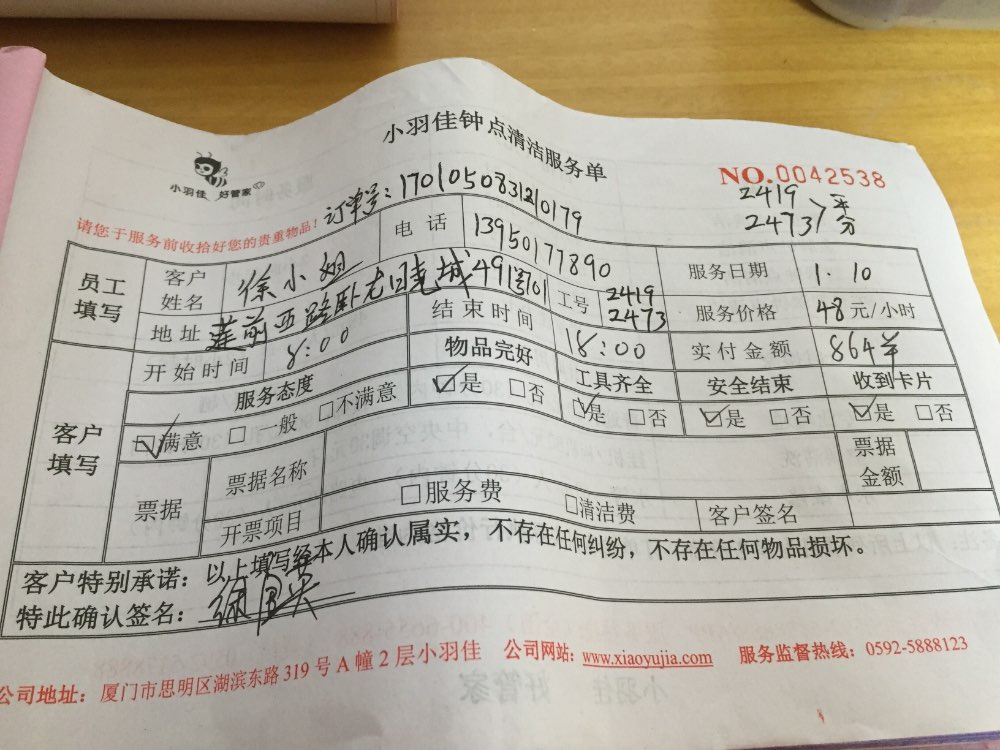 小羽佳钟点清洁服务单
小羽佳 好管家
NO.0042538
订单号: 1701050831210179
2419
2473 > 平分
请您于服务前收拾好您的贵重物品!
员工填写 客户姓名 徐小姐 电话 13950177890 服务日期 1.10
地址 莲前西路卧龙晓城49号101 工号 2419 2473 服务价格 48元/小时
开始时间 8:00 结束时间 18:00 实付金额 864
客户填写 服务态度 物品完好 工具齐全 安全结束 收到卡片
☑满意 □一般 □不满意 ☑是 □否 ☑是 □否 ☑是 □否 ☑是 □否
票据 票据名称 票据金额
开票项目 □服务费 □清洁费 客户签名
客户特别承诺:以上填写经本人确认属实,不存在任何纠纷,不存在任何物品损坏。
特此确认签名: 徐
公司地址:厦门市思明区湖滨东路319号A幢2层小羽佳 公司网站:www.xiaoyujia.com 服务监督热线:0592-5888123